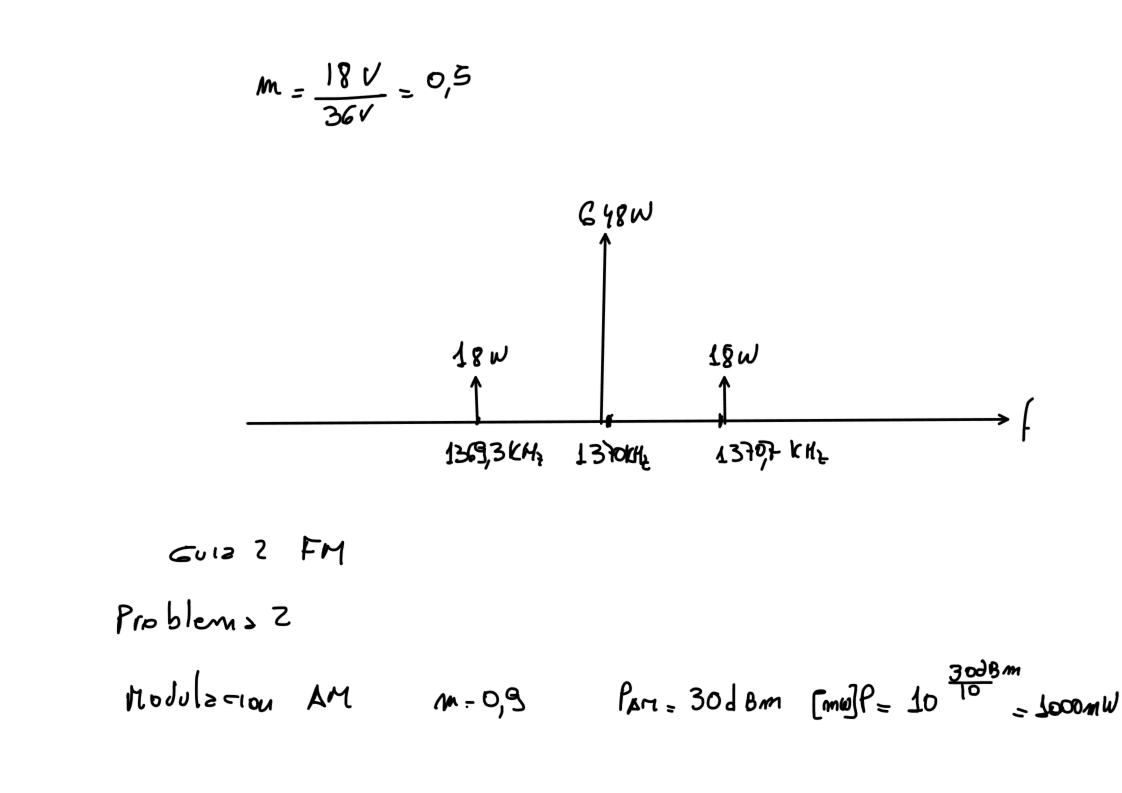 m = 18 V / 36V = 0,5
648W
18W 18W
1369,3KHz 1370KHz 1370,7 KHz
f
Guia 2 FM
Problema 2
Modulacion AM m=0,9 PAM = 30dBm [mW]P = 10^(30dBm/10) = 1000mW